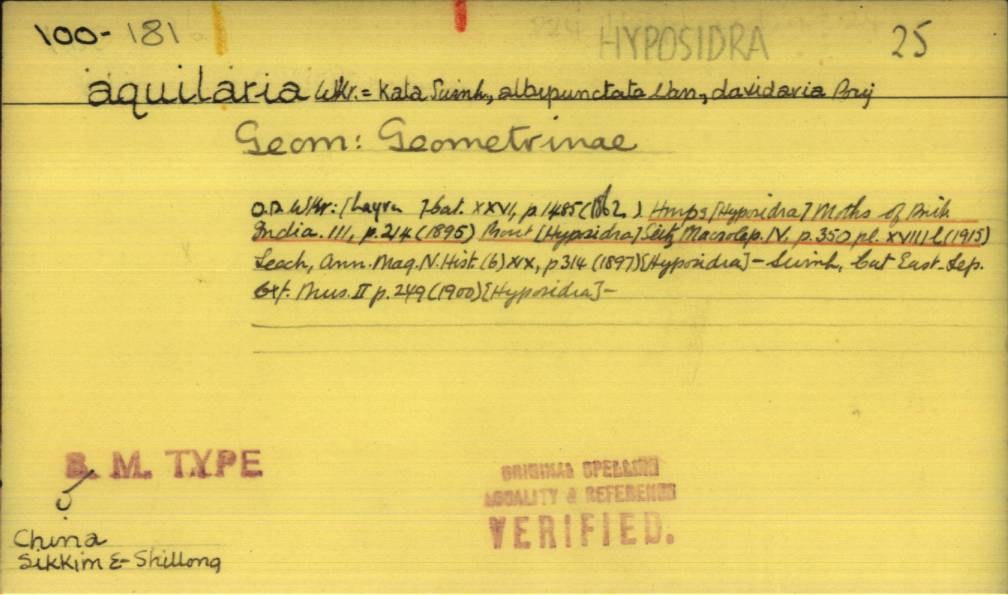 100-181 HYPOSIDRA 25
aquilaria Wkr. = Kala Swinh., albipunctata Warr., davidaria Pouj
Geom: Geometrinae
O.D. Wkr: [Lagyra] Cat. XXVI, p.1485 (1862). Hmps [Hyposidra] Moths of Brit.
India. III, p.214 (1895) Prout [Hyposidra] Seitz Macrolep. IV. p.350 pl. XVIII l (1915)
Leech, Ann. Mag. N. Hist. (6) XIX, p314 (1897) [Hyposidra] - Swinh. Cat East. Lep.
Oxf. Mus. II p.249 (1900) [Hyposidra] -
B. M. TYPE
ORIGINAL SPELLING
LOCALITY & REFERENCE
VERIFIED.
China
Sikkim & Shillong